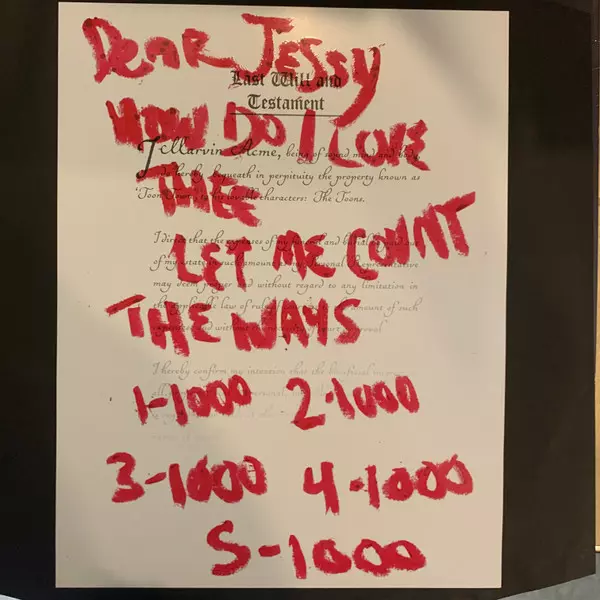 DEAR JESSY
Last Will and
Testament
HOW DO I LOVE
I, Marvin Acme, being of sound mind and body
do hereby bequeath in perpetuity the property known as
THEE
'Toon Town' to his lovable characters: The Toons.
I direct that the expenses of my funeral and burial be paid out
LET ME COUNT
of my estate in such amount as my Personal Representative
may deem proper and without regard to any limitation in
THE WAYS
the applicable law of rule amount of such
and without the
I hereby confirm my intention that the beneficial
1-1000 2-1000
3-1000 4-1000
5-1000